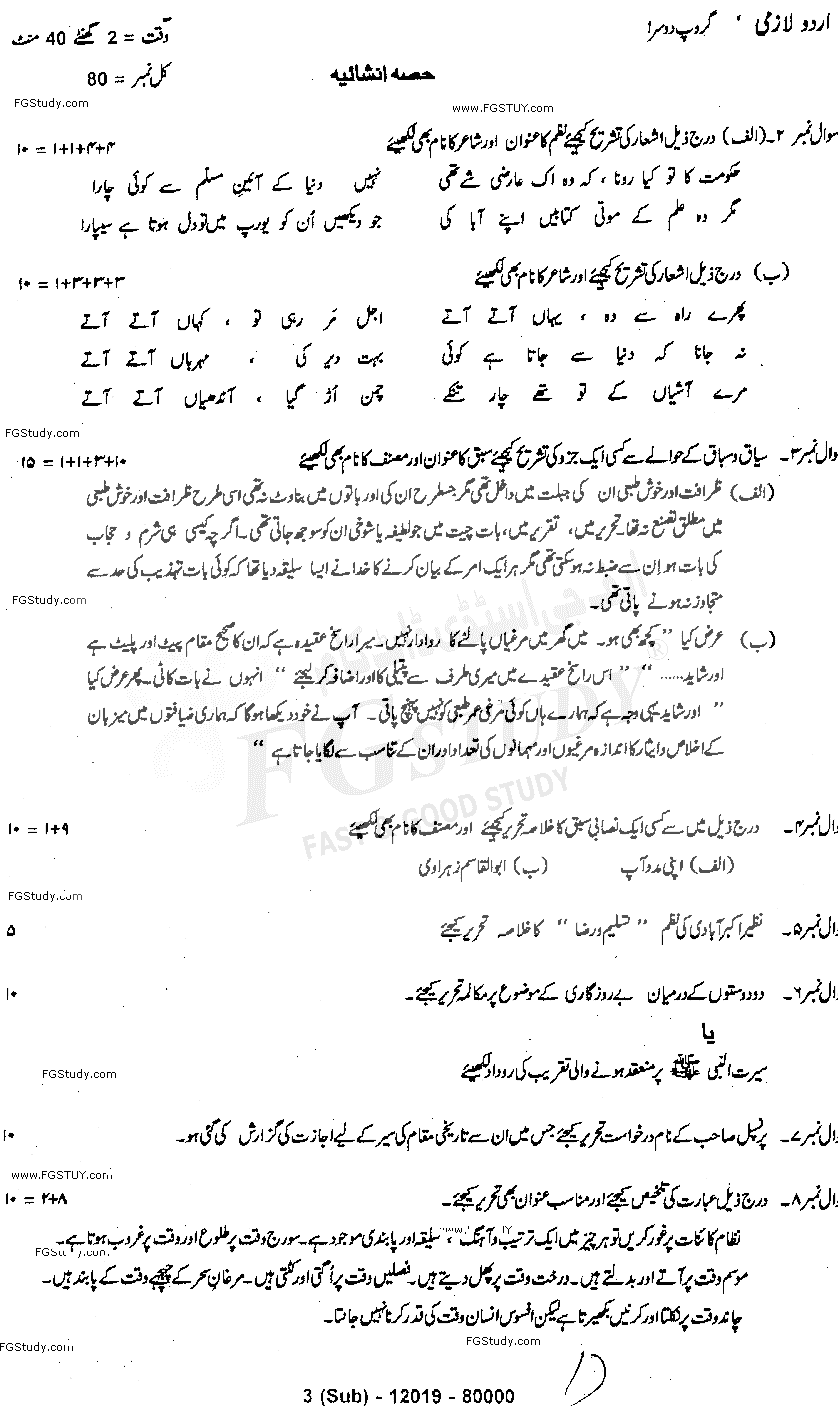 اردو لازمی ، گروپ دوسرا
وقت = 2 گھنٹے 40 منٹ
حصہ انشائیہ
کل نمبر = 80
FGStudy.com
www.FGSTUY.com
سوال نمبر ۲۔ (الف) درج ذیل اشعار کی تشریح کیجئے نظم کا عنوان اور شاعر کا نام بھی لکھیئے ۱۰ = ۱+۱+۴+۴
حکومت کا تو کیا رونا ، کہ وہ اک عارضی شے تھی نہیں دنیا کے آئینِ مسلم سے کوئی چارا
مگر وہ علم کے موتی کتابیں اپنے آبا کی جو دیکھیں اُن کو یورپ میں تو دل ہوتا ہے سیپارا
(ب) درج ذیل اشعار کی تشریح کیجئے اور شاعر کا نام بھی لکھیئے ۱۰ = ۱+۳+۳+۳
پھرے راہ سے وہ ، یہاں آتے آتے اجل مَر رہی تو ، کہاں آتے آتے
نہ جانا کہ دنیا سے جاتا ہے کوئی بہت دیر کی ، مہرباں آتے آتے
مرے آشیاں کے تو تھے چار تنکے چمن اُڑ گیا ، آندھیاں آتے آتے
FGStudy.com
وال نمبر ۳۔ سیاق و سباق کے حوالے سے کسی ایک جزو کی تشریح کیجئے سبق کا عنوان اور مصنف کا نام بھی لکھیئے ۱۵ = ۱+۱+۳+۱۰
(الف) ظرافت اور خوش طبعی ان کی جبلت میں داخل تھی مگر جسطرح ان کی اور باتوں میں بناوٹ نہ تھی اسی طرح ظرافت اور خوش طبعی
میں مطلق تصنع نہ تھا۔ تحریر میں، تقریر میں، بات چیت میں جو لطیفہ یا شوخی ان کو سوجھ جاتی تھی۔ اگرچہ کیسی ہی شرم و حجاب
کی بات ہو ان سے ضبط نہ ہو سکتی تھی مگر ہر ایک امر کے بیان کرنے کا خدا نے ایسا سلیقہ دیا تھا کہ کوئی بات تہذیب کی حد سے
FGStudy.com
متجاوز نہ ہونے پاتی تھی۔
(ب) عرض کیا " کچھ بھی ہو۔ میں گھر میں مرغیاں پالنے کا روادار نہیں۔ میرا راسخ عقیدہ ہے کہ ان کا صحیح مقام پیٹ اور پلیٹ ہے
اور شاید......" " اس راسخ عقیدے میں میری طرف سے پتیلی کا اور اضافہ کر لیجئے " انہوں نے بات کاٹی۔ پھر عرض کیا
" اور شاید یہی وجہ ہے کہ ہمارے ہاں کوئی مرغی عمر طبعی کو نہیں پہنچ پاتی۔ آپ نے خود دیکھا ہو گا کہ ہماری ضیافتوں میں میزبان
کے اخلاص و ایثار کا اندازہ مرغیوں اور مہمانوں کی تعداد اور ان کے تناسب سے لگایا جاتا ہے "
ایف جی اسٹڈی ڈاٹ کام
FGSTUDY®
FAST GOOD STUDY
وال نمبر ۴۔ درج ذیل میں سے کسی ایک نصابی سبق کا خلاصہ تحریر کیجئے اور مصنف کا نام بھی لکھیئے ۱۰ = ۱+۹
(الف) اپنی مدد آپ (ب) ابوالقاسم زہراوی
FGStudy.com
وال نمبر ۵۔ نظیر اکبر آبادی کی نظم " تسلیم و رضا " کا خلاصہ تحریر کیجئے ۵
وال نمبر ۶۔ دو دوستوں کے درمیان بے روزگاری کے موضوع پر مکالمہ تحریر کیجئے۔ ۱۰
یا
سیرت النبی ﷺ پر منعقد ہونے والی تقریب کی روداد لکھیئے
FGStudy.com
وال نمبر ۷۔ پرنسپل صاحب کے نام درخواست تحریر کیجئے جس میں ان سے تاریخی مقام کی سیر کے لیے اجازت کی گزارش کی گئی ہو۔ ۱۰
www.FGSTUY.com
وال نمبر ۸۔ درج ذیل عبارت کی تلخیص کیجئے اور مناسب عنوان بھی تحریر کیجئے۔ ۱۰ = ۲+۸
نظام کائنات پر غور کریں تو ہر چیز میں ایک ترتیب و آہنگ، سلیقہ اور پابندی موجود ہے۔ سورج وقت پر طلوع اور وقت پر غروب ہوتا ہے۔
FGStudy.com
موسم وقت پر آتے اور بدلتے ہیں۔ درخت وقت پر پھل دیتے ہیں۔ فصلیں وقت پر اُگتی اور کٹتی ہیں۔ مرغانِ سحر کے چہچہے وقت کے پابند ہیں۔
چاند وقت پر نکلتا اور کرنیں بکھیرتا ہے لیکن افسوس انسان وقت کی قدر کرنا نہیں جانتا۔
FGStudy.com
FGStudy.com
3 (Sub) - 12019 - 80000